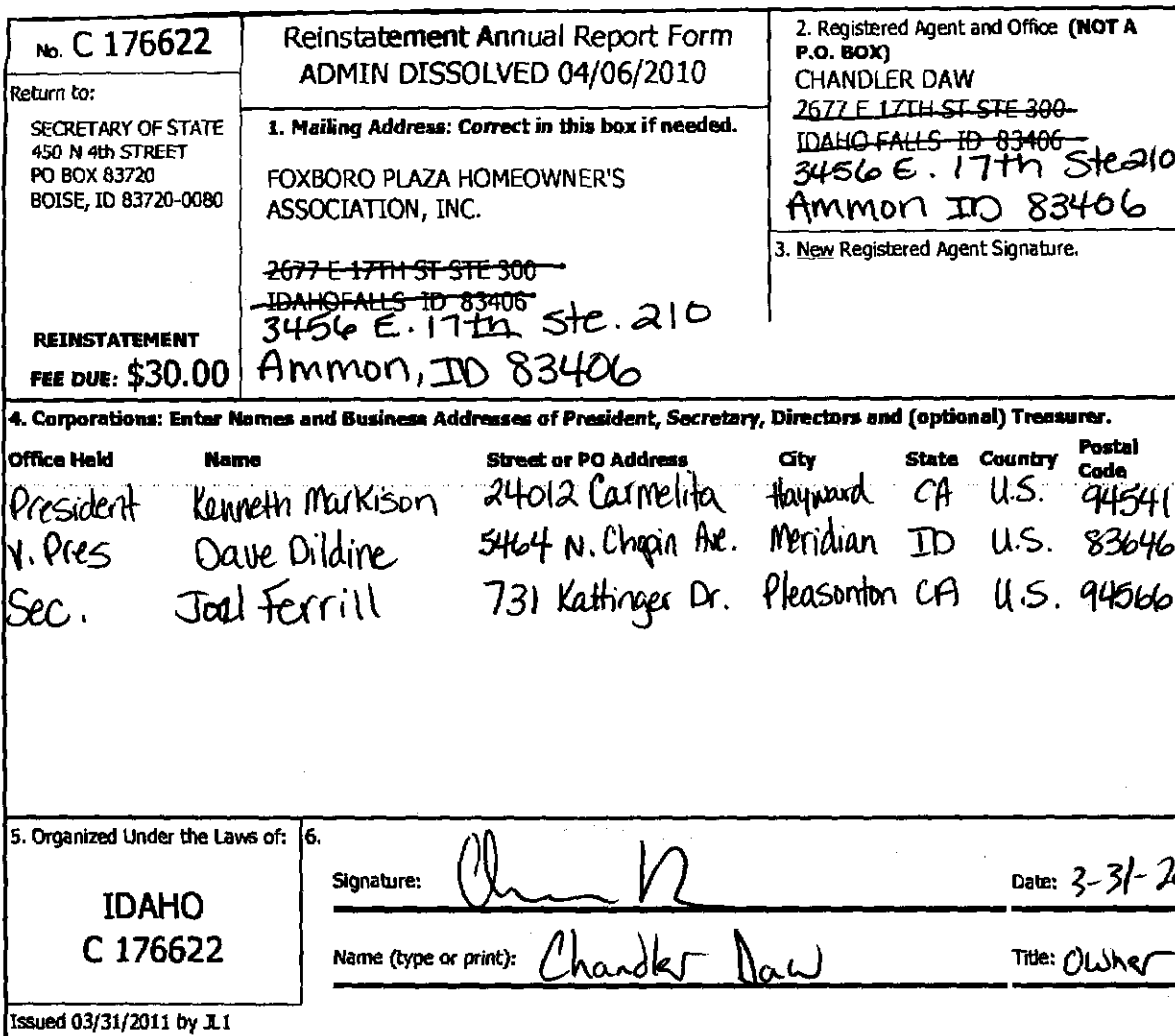 No. C 176622
Return to:
SECRETARY OF STATE
450 N 4th STREET
PO BOX 83720
BOISE, ID 83720-0080
REINSTATEMENT
FEE DUE: $30.00
Reinstatement Annual Report Form
ADMIN DISSOLVED 04/06/2010
1. Mailing Address: Correct in this box if needed.
FOXBORO PLAZA HOMEOWNER'S
ASSOCIATION, INC.
2677 E 17TH ST STE 300
IDAHO FALLS ID 83406
3456 E. 17th Ste. 210
Ammon, ID 83406
2. Registered Agent and Office (NOT A
P.O. BOX)
CHANDLER DAW
2677 E 17TH ST STE 300
IDAHO FALLS ID 83406
3456 E. 17th Ste 210
Ammon ID 83406
3. New Registered Agent Signature.
4. Corporations: Enter Names and Business Addresses of President, Secretary, Directors and (optional) Treasurer.
Office Held Name Street or PO Address City State Country Postal Code
President Kenneth Markison 24012 Carmelita Hayward CA U.S. 94541
V. Pres Dave Dildine 5464 N. Chopin Ave. Meridian ID U.S. 83646
Sec. Joal Ferrill 731 Kattinger Dr. Pleasonton CA U.S. 94566
5. Organized Under the Laws of:
IDAHO
C 176622
6.
Signature: Date: 3-31-20
Name (type or print): Chandler Daw Title: Owner
Issued 03/31/2011 by JL1